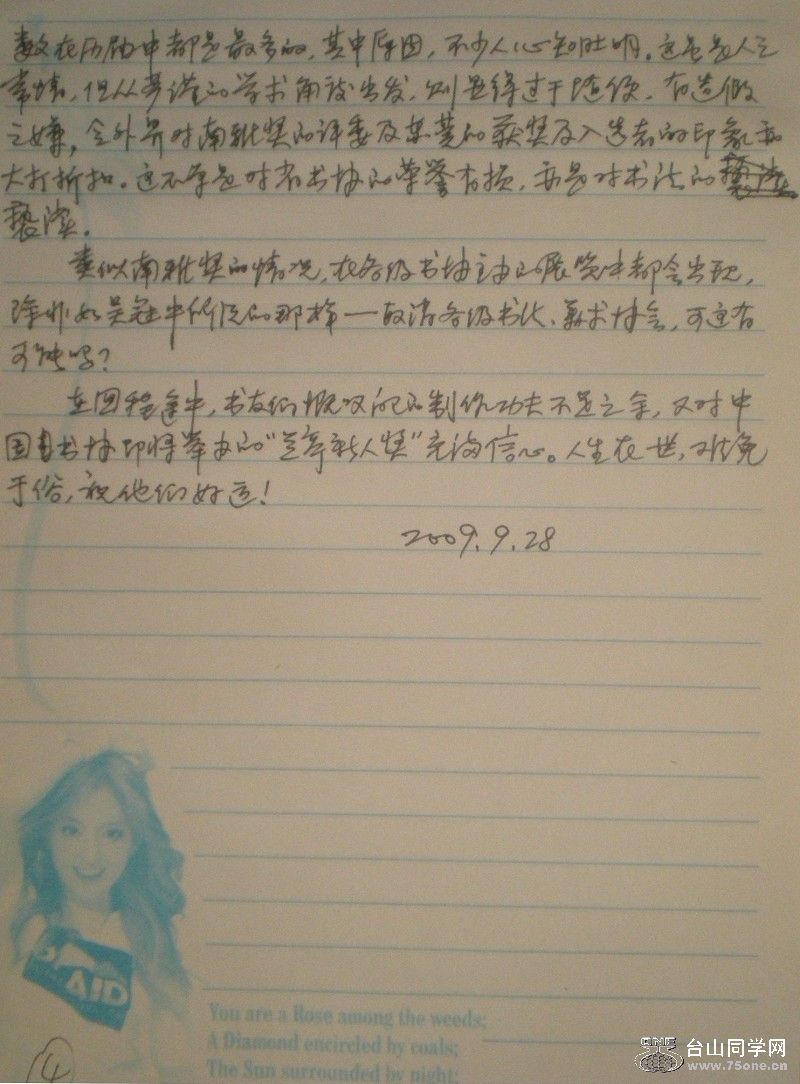 数在历届中都是最多的,其中原因,不少人心知肚明。这虽是人之
常情,但从严谨的学术角度出发,则显得过于随便,有造假
之嫌,令外界对南雅奖的评委及某些的获奖及入选者的印象亦
大打折扣。这不单是对省书协的荣誉有损,亦是对书法的
亵渎。
类似南雅奖的情况,在各级书协主办的展览中都会出现,
除非如吴冠中所说的那样—取消各级书协、美术协会,可这有
可能吗?
在回程途中,书友们慨叹自己的制作功夫不足之余,又对中
国书协即将举办的“兰亭新人奖”充满信心。人生在世,难免
于俗,祝他们好运!
2009.9.28
AID
You are a Rose among the weeds;
A Diamond encircled by coals;
The Sun surrounded by night;
4
ONE 台山同学网
www.75one.cn